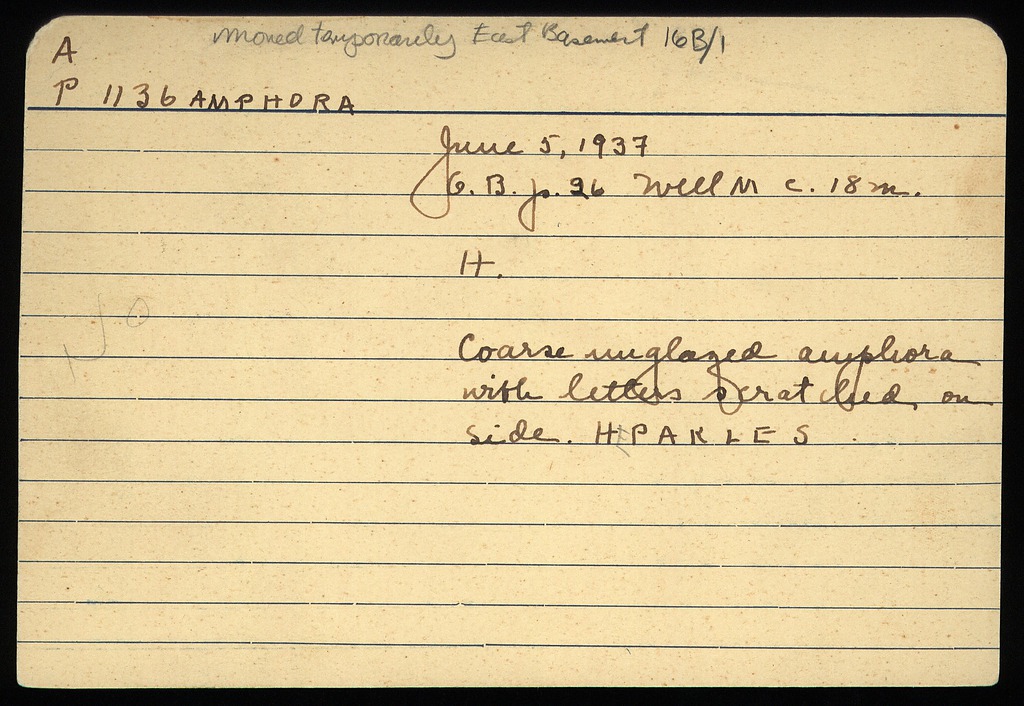 moved temporarily East Basement 16B/1
A
P 1136 AMPHORA
June 5, 1937
G.B. p. 36 Well M c. 18 m.
H.
Coarse unglazed amphora
with letters scratched on
side. HPAKLES